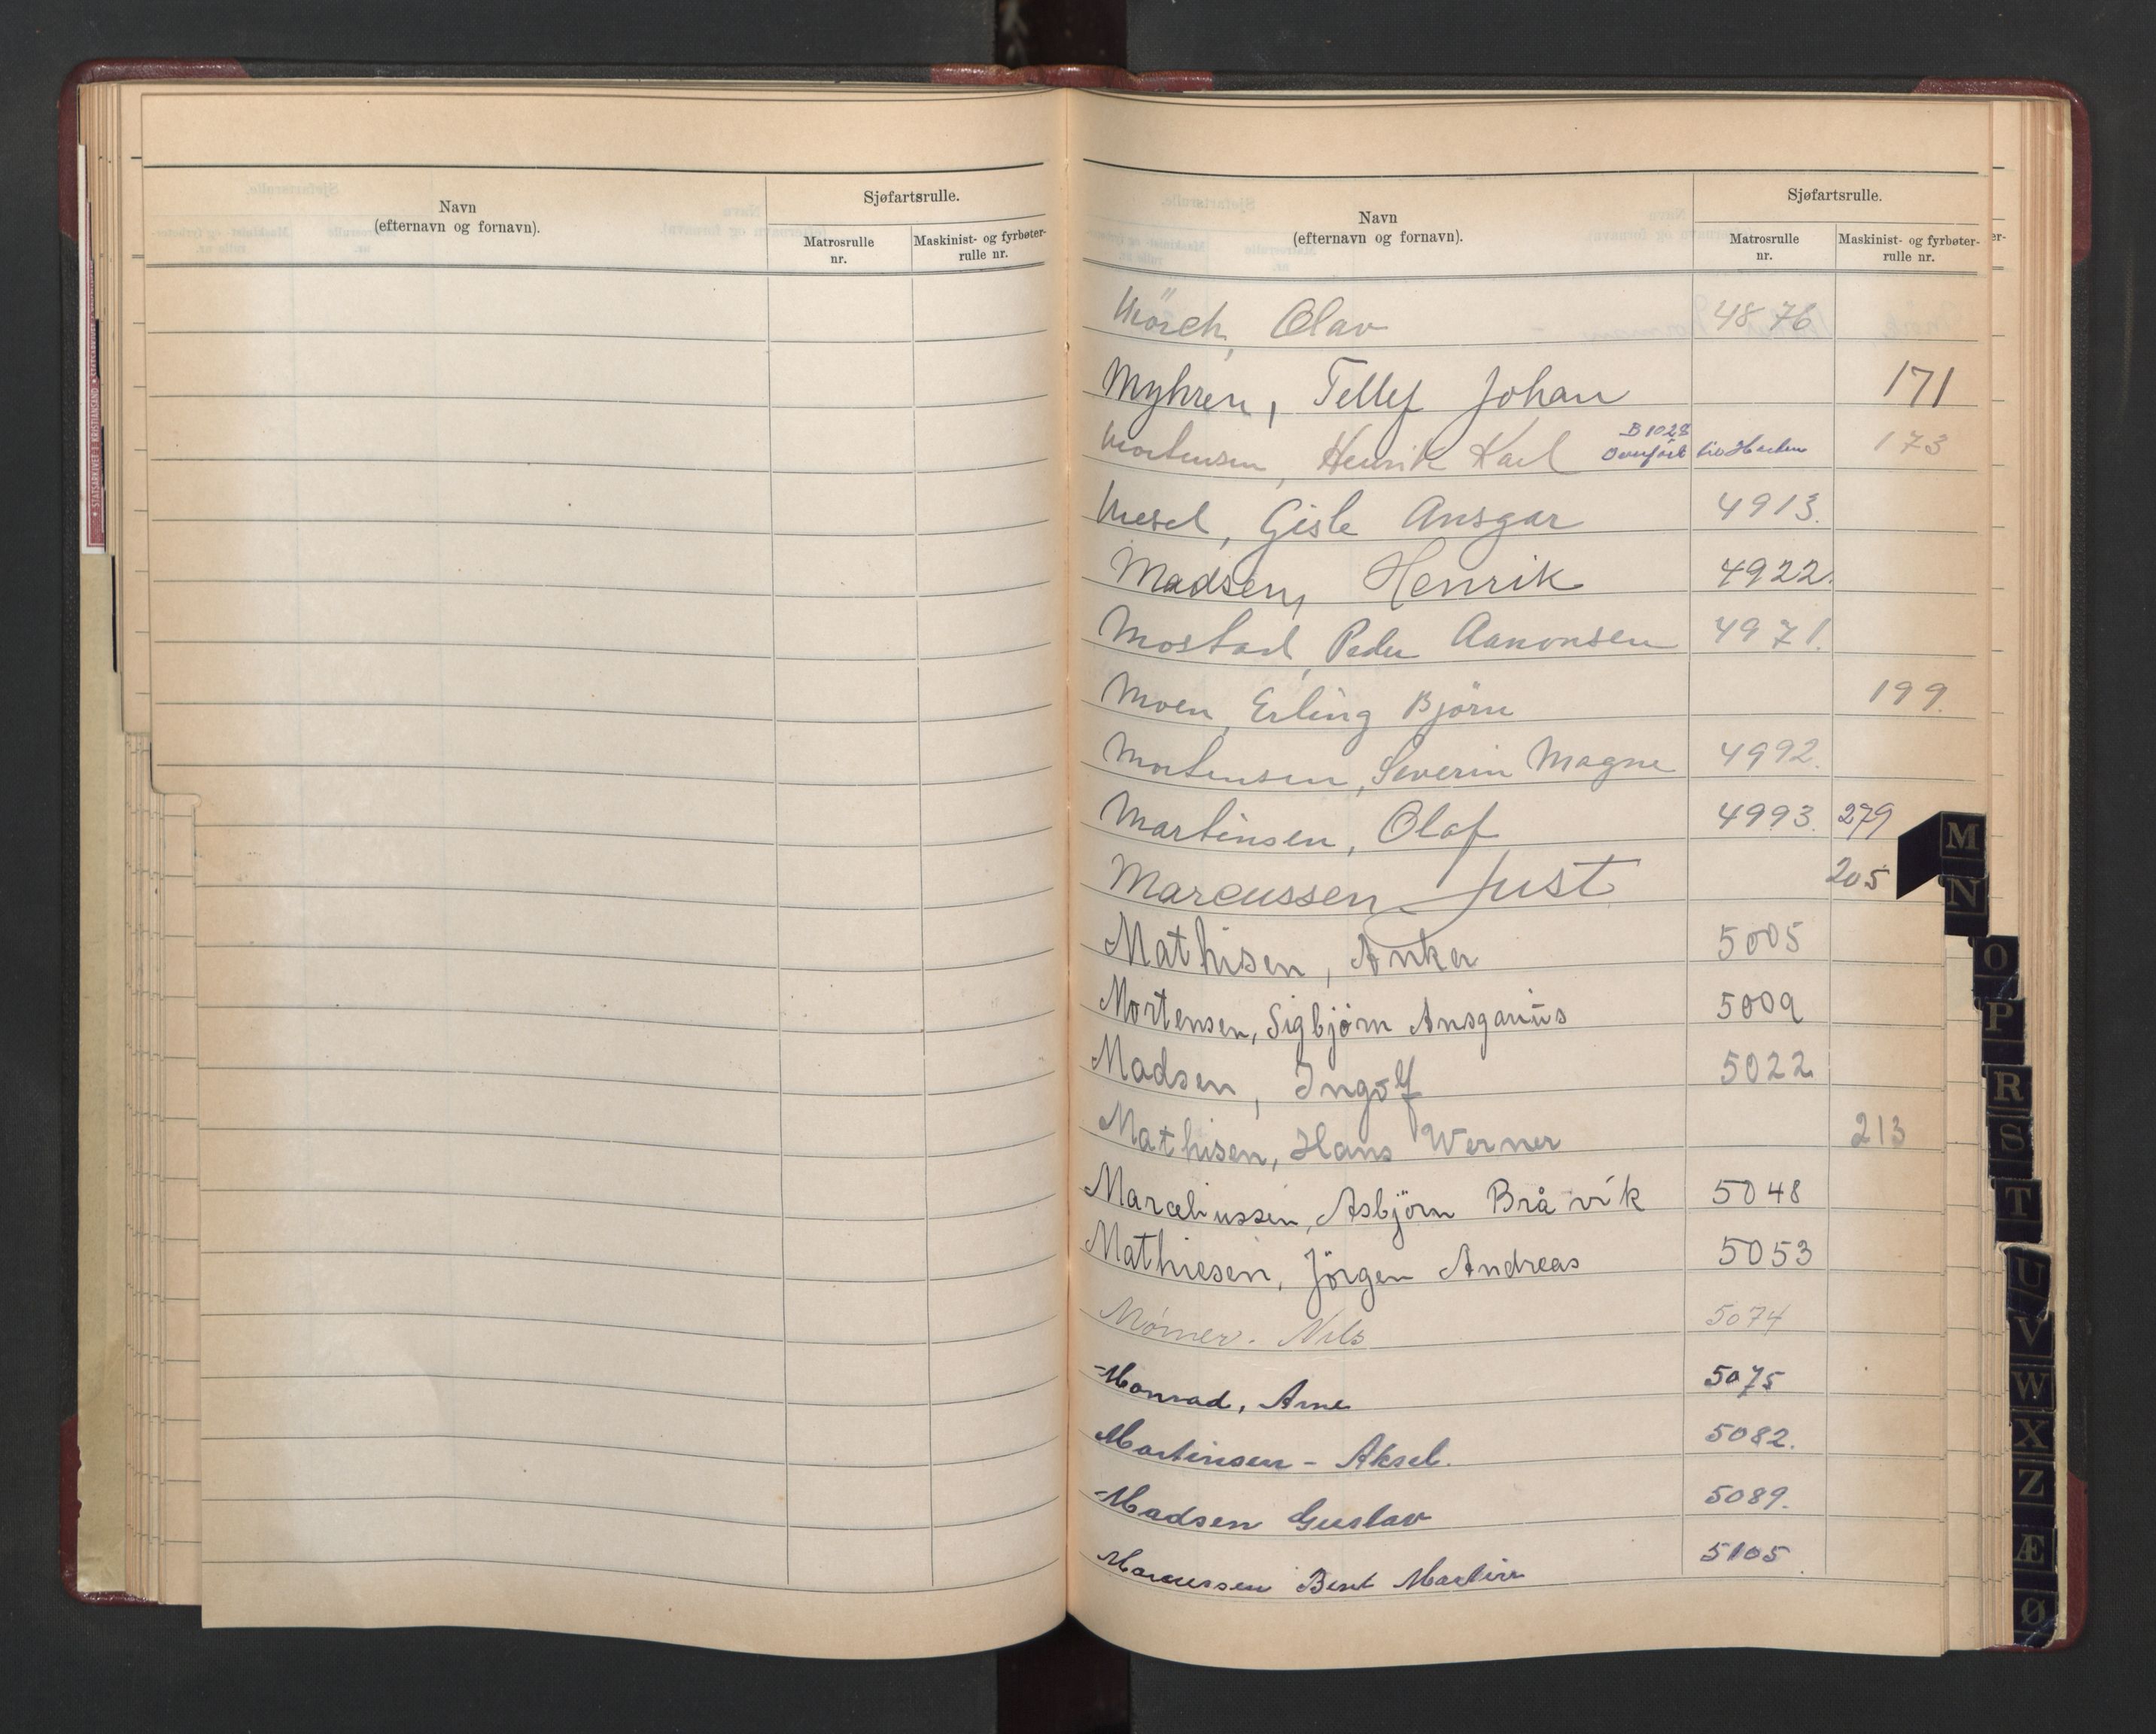 Navn
(efternavn og fornavn).
Sjøfartsrulle.
Matrosrulle
nr.
Maskinist- og fyrbøter-
rulle nr.
Navn
(efternavn og fornavn).
Sjøfartsrulle.
Matrosrulle
nr.
Maskinist- og fyrbøter-
rulle nr.
Mörch, Olav 4876
Myhren, Tellef Johan 171
B 1028
Mortensen, Henrik Karl Overført til 173
Mesel, Gisle Ansgar 4913.
Madsen, Henrik 4922.
Mostad, Peder Aanonsen 4971.
Moen, Erling Björn 199.
Mortensen, Severin Magne 4992.
Martinsen, Olaf 4993. 279
Marcussen Just 205
Mathisen, Anker 5005
Mortensen, Sigbjörn Ansgarius 5009
Madsen, Ingolf 5022
Mathisen, Hans Werner 213
Marceliussen, Asbjörn Bråvik 5048
Mathiesen, Jörgen Andreas 5053
Mörner. Nils 5074
Monrad, Arne 5075
Martinsen - Aksel. 5082.
Madsen Gustav 5089.
Marcussen Bent Martin 5105
M
N
O
P
R
S
T
U
V
W
X
Z
Æ
Ø